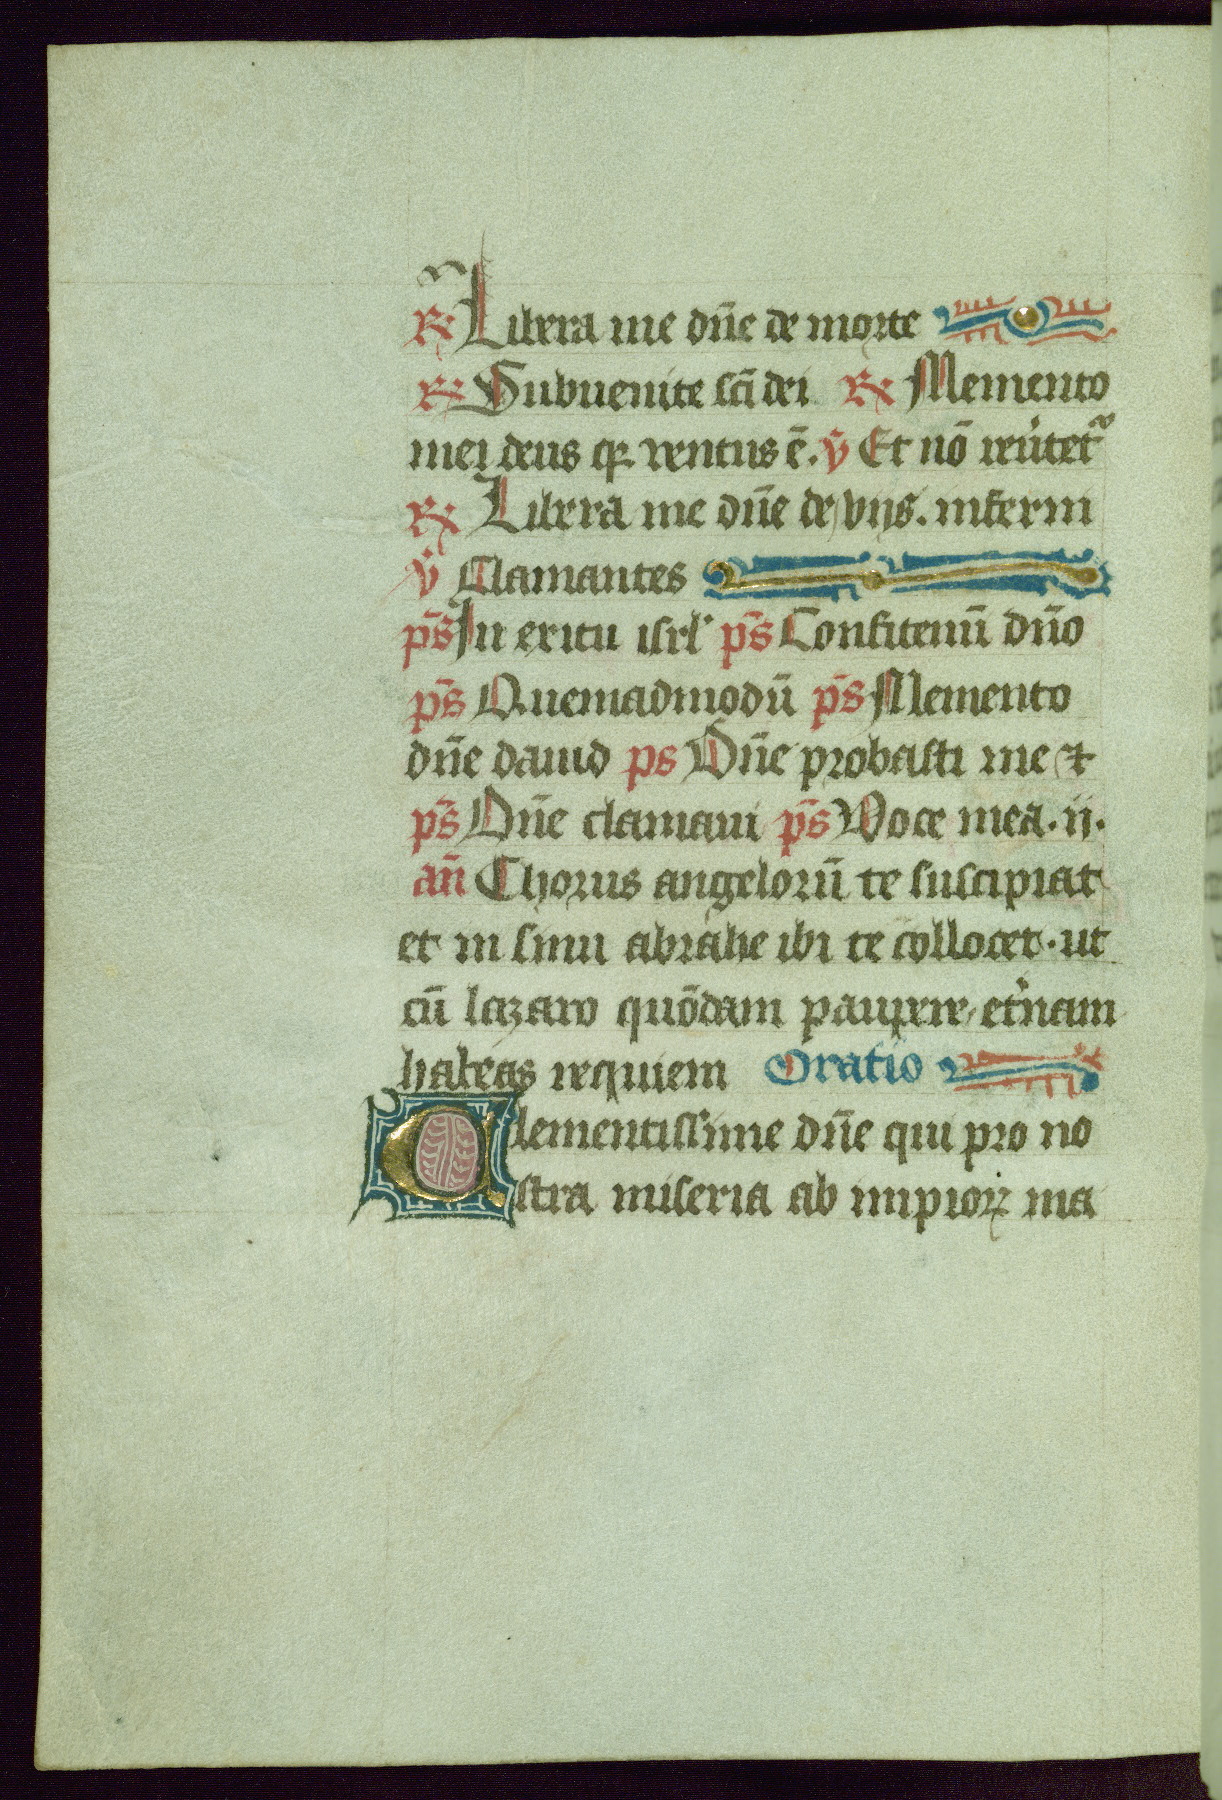 ℟ Libera me dn̄e de morte
℟ Subuenite sc̄i dei ℟ Memento
mei deus qꝛ uentus ē. ℣ Et nō reu̾tet᷑
℟ Libera me dn̄e de vijs. inferni
℣ Clamantes
pš In exitu isrl' pš Confitemī dn̄o
pš Quemadmodū pš Memento
dn̄e dauid ps Dn̄e probasti me ⁊
pš Dn̄e clamaui pš Voce mea. ij.
an̄ Chorus angelorū te suscipiat
et in sinu abrahe ibi te collocet. ut
cū lazaro quōdam paupere, et̾nam
habeas requiem Oratio
Clementissime dn̄e qui pro no
stra miseria ab impioꝝ ma